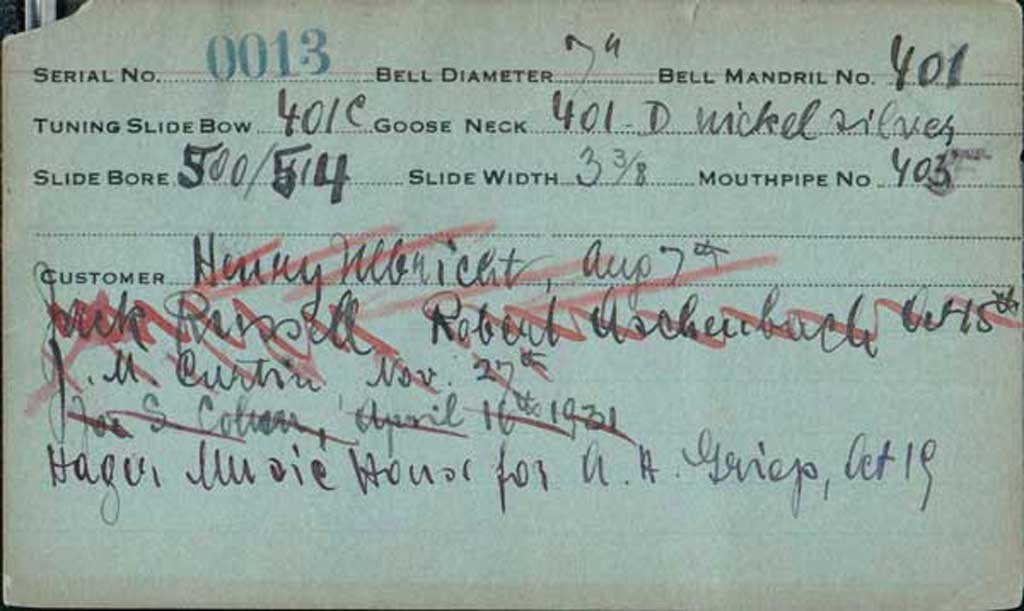 SERIAL NO. 0013 BELL DIAMETER 7" BELL MANDRIL NO. 401
TUNING SLIDE BOW 401C GOOSE NECK 401-D nickel silver
SLIDE BORE 500/514 SLIDE WIDTH 3 3/8 MOUTHPIPE NO 403
CUSTOMER Henry Ulbricht, Aug 7th
Jack Russell Robert Aschenbach Oct 15th
J. M. Curtin Nov. 27th
S. April 16th 1931
Music House for A. H. Oct 19